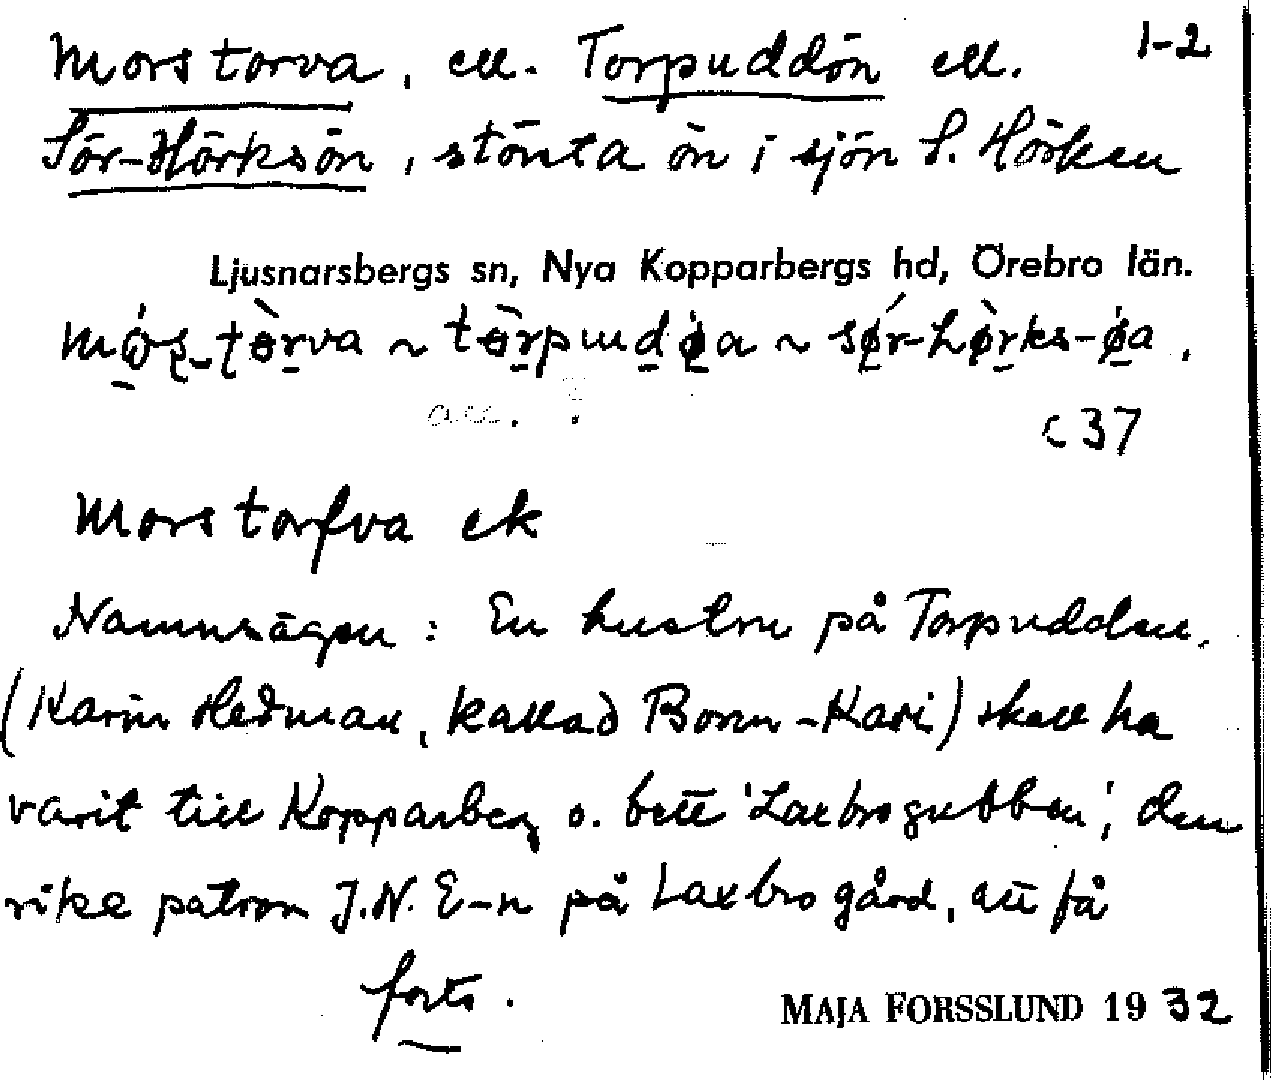 Morstorva, ell. Torpuddön ell. 1-2
Sör-Hörksön, största ön i sjön S. Hörken
Ljusnarsbergs sn, Nya Kopparbergs hd, Örebro län.
~ ~
acc. ?
c 37
Morstorfva ek
Namnsägen: En hustru på Torpudden.
(Karin Hedman, kallad Borm-Kari) skall ha
varit till Kopparberg o. bett 'Laxbrogubben', den
rike patron J.N. E-n på Laxbro gård, att få
forts.
MAJA FORSSLUND 1932